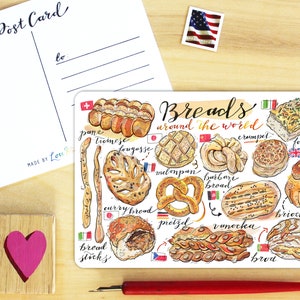 Post Card
to
MADE BY
Breads
around the world
pane
ticinese
fougasse
melonpan
crumpet
barbari
bread
curry bread
pretzel
bread
sticks
vánočka